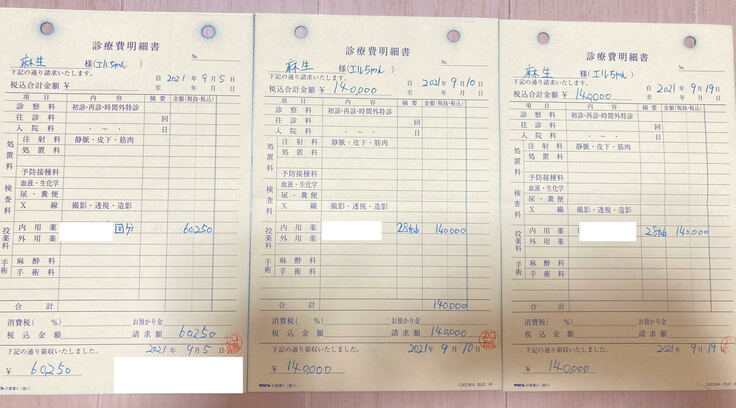 診療費明細書
№
麻生 様(エルちゃん)
下記の通り請求いたします。
自 2021年 9月 5日
税込合計金額 ¥
至 年 月 日
項目 内容 摘要 金額(税抜・税込)
診察料 初診・再診・時間外特診
往診料 回
入院料 ・ ~ ・ 日
処置料 注射料 静脈・皮下・筋肉
処置料
予防接種料
検査料 血液・生化学
尿・糞便
X線 撮影・透視・造影
投薬料 内用薬 回分 60,250
外用薬
手術 麻酔料
手術料
合計
消費税( %) お預かり金
税込金額 請求額 60,250
下記の通り領収いたしました。 2021年 9月 5日
¥ 60,250
診療費明細書
№
麻生 様(エルちゃん)
下記の通り請求いたします。
自 2021年 9月 10日
税込合計金額 ¥ 140,000
至 年 月 日
項目 内容 摘要 金額(税抜・税込)
診察料 初診・再診・時間外特診
往診料 回
入院料 ・ ~ ・ 日
処置料 注射料 静脈・皮下・筋肉
処置料
予防接種料
検査料 血液・生化学
尿・糞便
X線 撮影・透視・造影
投薬料 内用薬 28tab 140,000
外用薬
手術 麻酔料
手術料
合計 140,000
消費税( %) お預かり金
税込金額 請求額 140,000
下記の通り領収いたしました。 2021年 9月 10日
¥ 140,000
診療費明細書
№
麻生 様(エルちゃん)
下記の通り請求いたします。
自 2021年 9月 19日
税込合計金額 ¥ 140,000
至 年 月 日
項目 内容 摘要 金額(税抜・税込)
診察料 初診・再診・時間外特診
往診料 回
入院料 ・ ~ ・ 日
処置料 注射料 静脈・皮下・筋肉
処置料
予防接種料
検査料 血液・生化学
尿・糞便
X線 撮影・透視・造影
投薬料 内用薬 28tab 140,000
外用薬
手術 麻酔料
手術料
合計
消費税( %) お預かり金
税込金額 請求額
下記の通り領収いたしました。 2021年 9月 19日
¥ 140,000